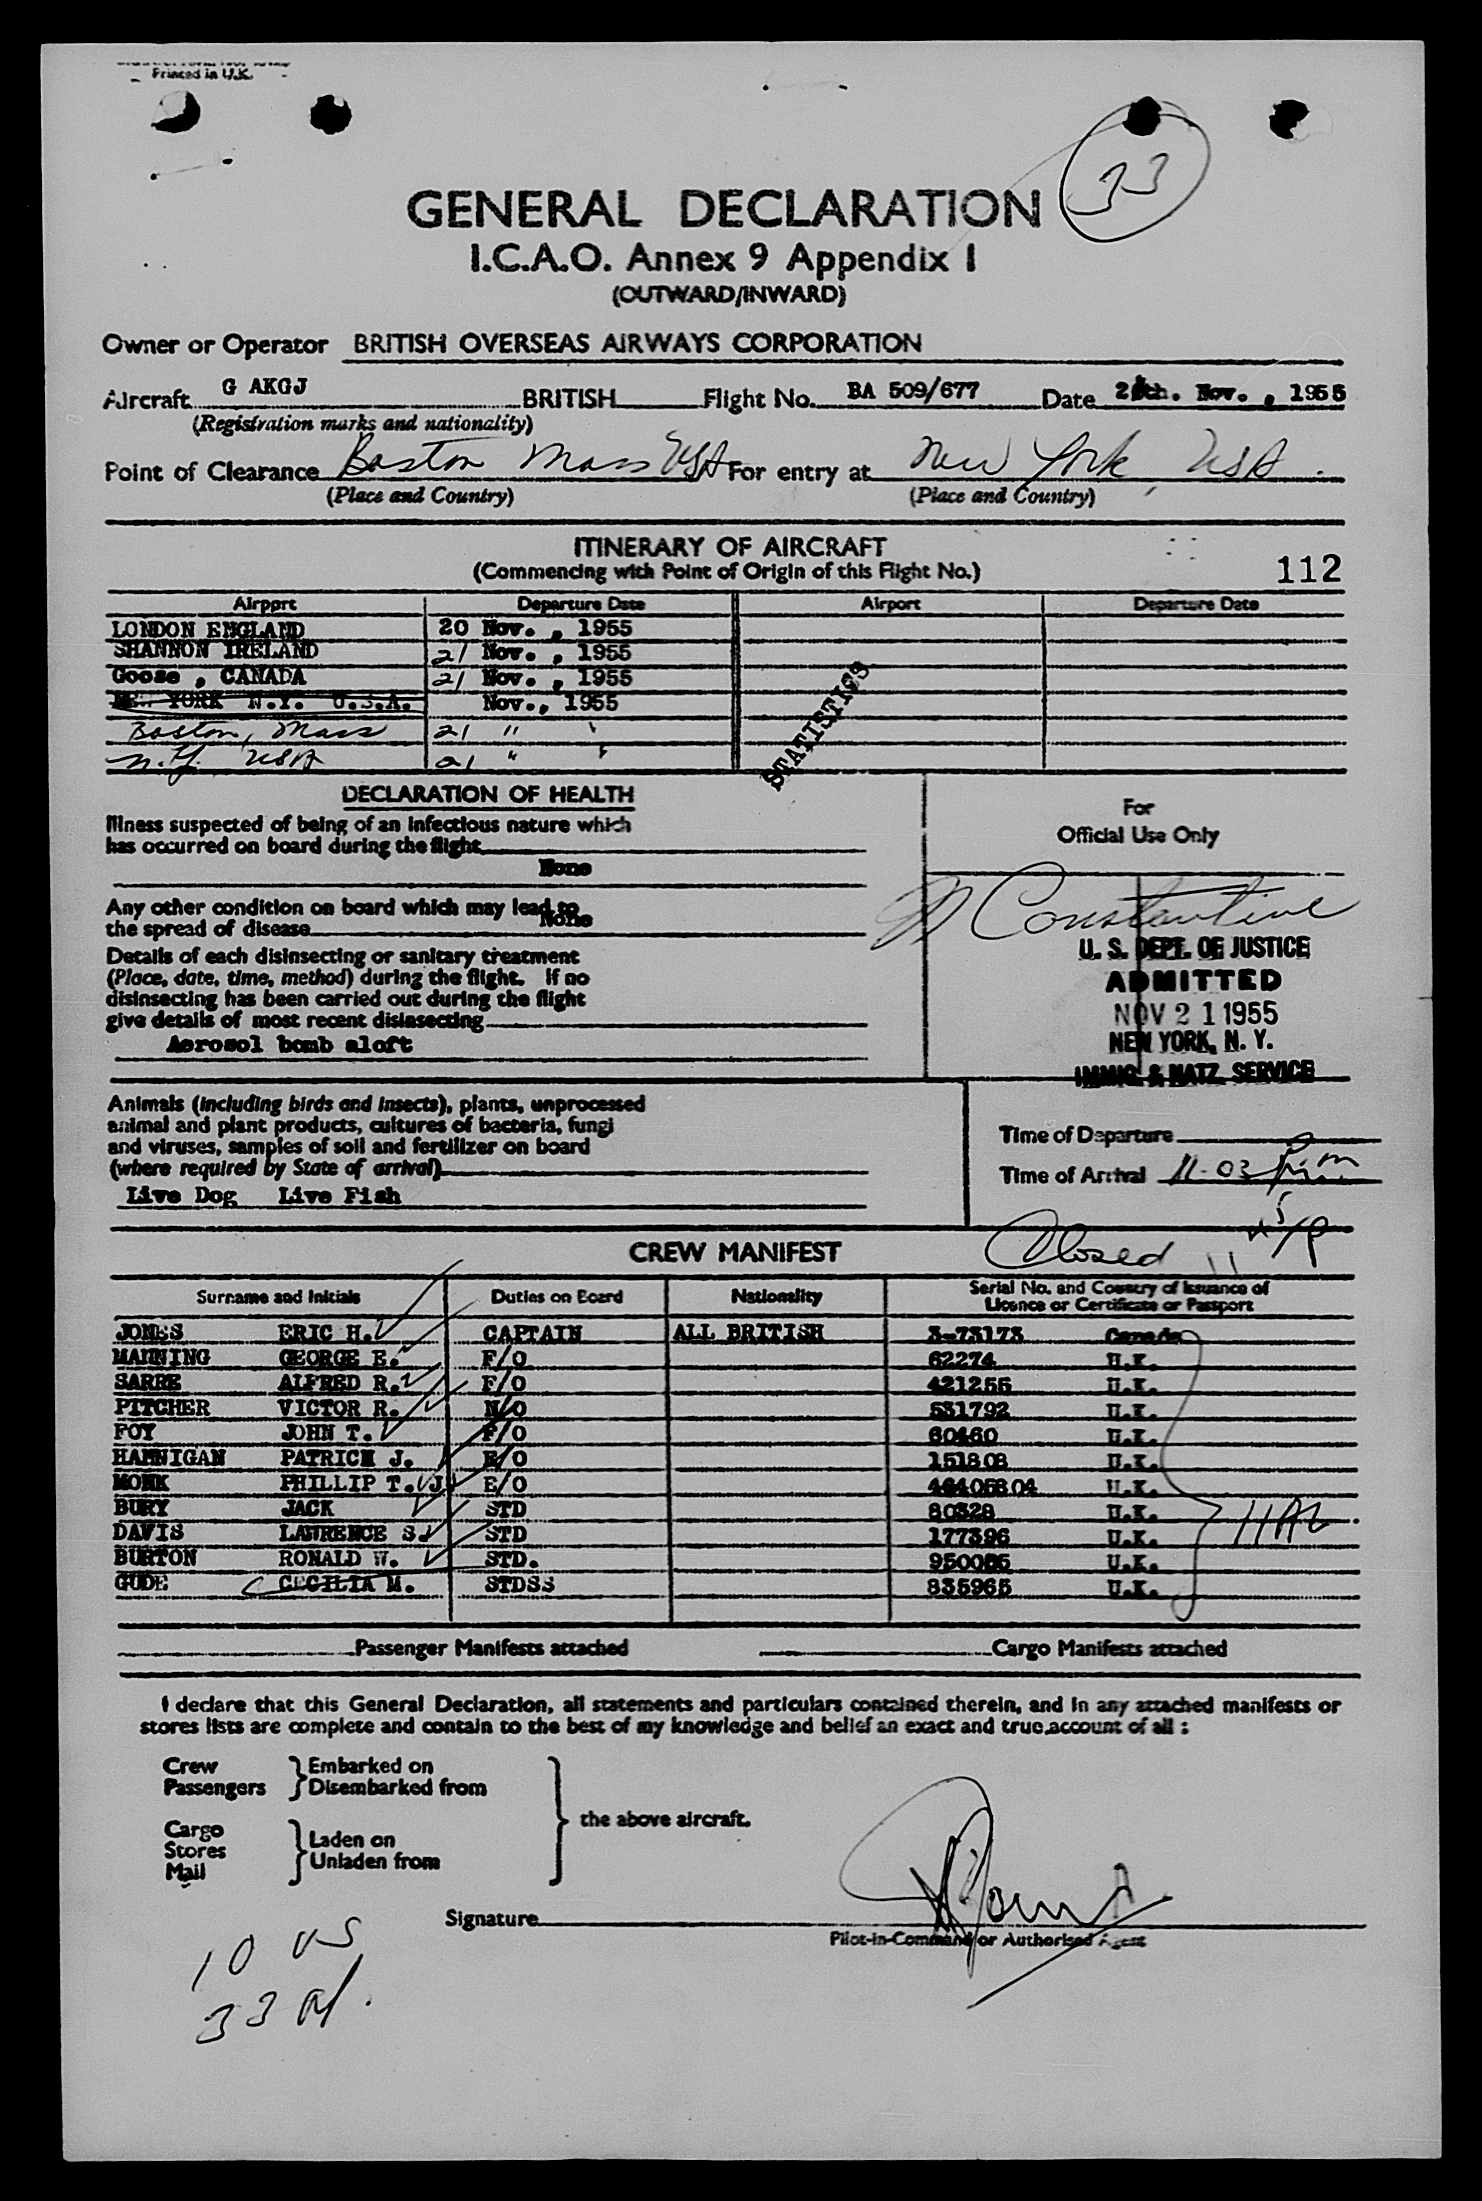 Printed in U.K.
33
GENERAL DECLARATION
I.C.A.O. Annex 9 Appendix I
(OUTWARD/INWARD)
Owner or Operator BRITISH OVERSEAS AIRWAYS CORPORATION
Aircraft G AKGJ BRITISH Flight No. BA 509/677 Date Nov., 1955
(Registration marks and nationality)
Point of Clearance Boston Mass USA For entry at New York, USA.
(Place and Country) (Place and Country)
ITINERARY OF AIRCRAFT
(Commencing with Point of Origin of this Flight No.) 112
Airport Departure Date Airport Departure Date
LONDON ENGLAND 20 Nov. , 1955
SHANNON IRELAND 21 Nov. , 1955
Goose , CANADA 21 Nov. , 1955
NEW YORK N.Y. U.S.A. Nov., 1955
Boston, Mass 21 " "
N.Y. USA 21 " "
STATISTICS
DECLARATION OF HEALTH
Illness suspected of being of an infectious nature which
has occurred on board during the flight
None
Any other condition on board which may lead to
the spread of disease None
Details of each disinsecting or sanitary treatment
(Place, date, time, method) during the flight. If no
disinsecting has been carried out during the flight
give details of most recent disinsecting
Aerosol bomb aloft
For
Official Use Only
Constantine
U. S. DEPT. OF JUSTICE
ADMITTED
NOV 21 1955
NEW YORK, N. Y.
IMMIG. & NATZ. SERVICE
Animals (including birds and insects), plants, unprocessed
animal and plant products, cultures of bacteria, fungi
and viruses, samples of soil and fertilizer on board
(where required by State of arrival)
Live Dog Live Fish
Time of Departure
Time of Arrival 11-03 p.m
Closed 11
CREW MANIFEST
Surname and Initials Duties on Board Nationality Serial No. and Country of Issuance of
Licence or Certificate or Passport
JONES ERIC H. CAPTAIN ALL BRITISH 3-73173 Canada
MANNING GEORGE E. F/O 62274 U.K.
SARRE ALFRED R. F/O 421255 U.K.
PITCHER VICTOR R. N/O 531792 U.K.
FOY JOHN T. F/O 60460 U.K.
HANNIGAN PATRICK J. R/O 151808 U.K.
MONK PHILLIP T. J E/O 464058 04 U.K.
BURY JACK STD 80328 U.K.
DAVIS LAURENCE S. STD 177396 U.K.
BURTON RONALD W. STD. 950085 U.K.
GUDE CECILIA M. STDSS 835965 U.K.
Passenger Manifests attached Cargo Manifests attached
I declare that this General Declaration, all statements and particulars contained therein, and in any attached manifests or
stores lists are complete and contain to the best of my knowledge and belief an exact and true account of all :
Crew Embarked on
Passengers Disembarked from
the above aircraft.
Cargo
Stores Laden on
Mail Unladen from
Signature
Pilot-in-Command or Authorised Agent
10 US
33 Al.